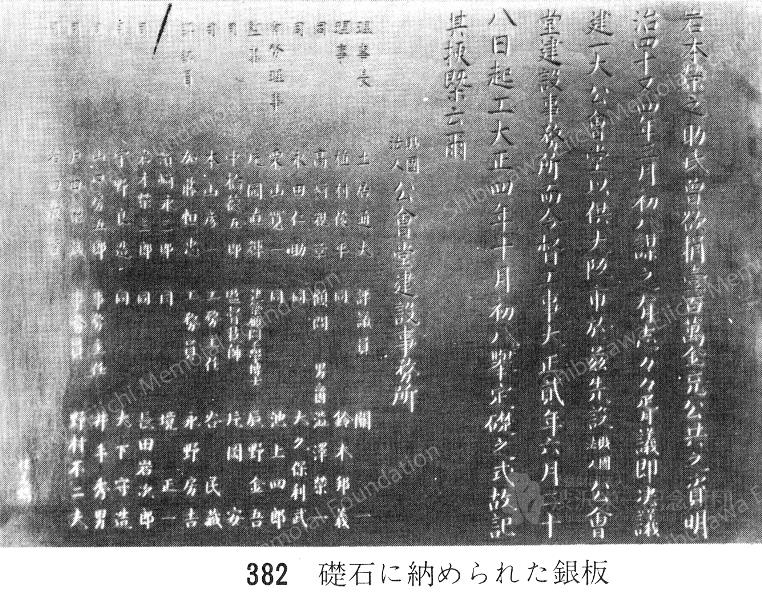 岩本榮之助氏曾欲捐壹百萬金充公共之資明
治四十又四年三月初八謀之有志々々胥議即決議
建一大公會堂以供大阪市於茲先設財團公會
堂建設事務所而今督工事大正貳年六月二十
八日起工大正四年十月初八擧定礎之式故記
其梗槩云爾
財團法人 公會堂建設事務所
理事長 土居通夫 評議員 關 一
理事 植村俊平 同 鈴木邦義
同 高崎親章 顧問 男爵 澁澤榮一
同 永田仁助 同 大久保利武
常務理事 栗山寛一 同 池上四郎
監事 片岡直輝 建築顧問工學博士 辰野金吾
同 中橋德五郎 監督技師 片岡 安
同 本山彦一 工務主任 谷 民藏
評議員 加藤恒忠 工務員 永野房吉
永三郎 同 境 正一
三郎 同 長田岩次郎
宇野良造 同 大下守造
山口房五郎 事務主任 井本秀男
事務員 野村不二夫
382 礎石に納められた銀板
Shibusawa Eiichi Memorial Foundation